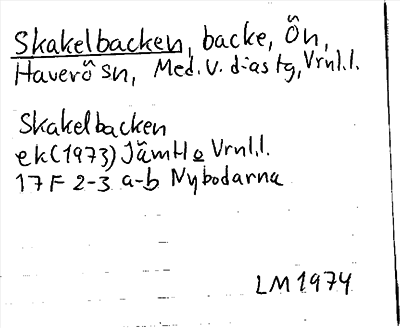 Skakelbacken, backe, Ön,
Haverö sn, Med. V. d:as tg, Vrnl.l.
Skakelbacken
ek(1973) JämtH o Vrnl.l.
17F 2-3 a-b Nybodarna
LM 1974